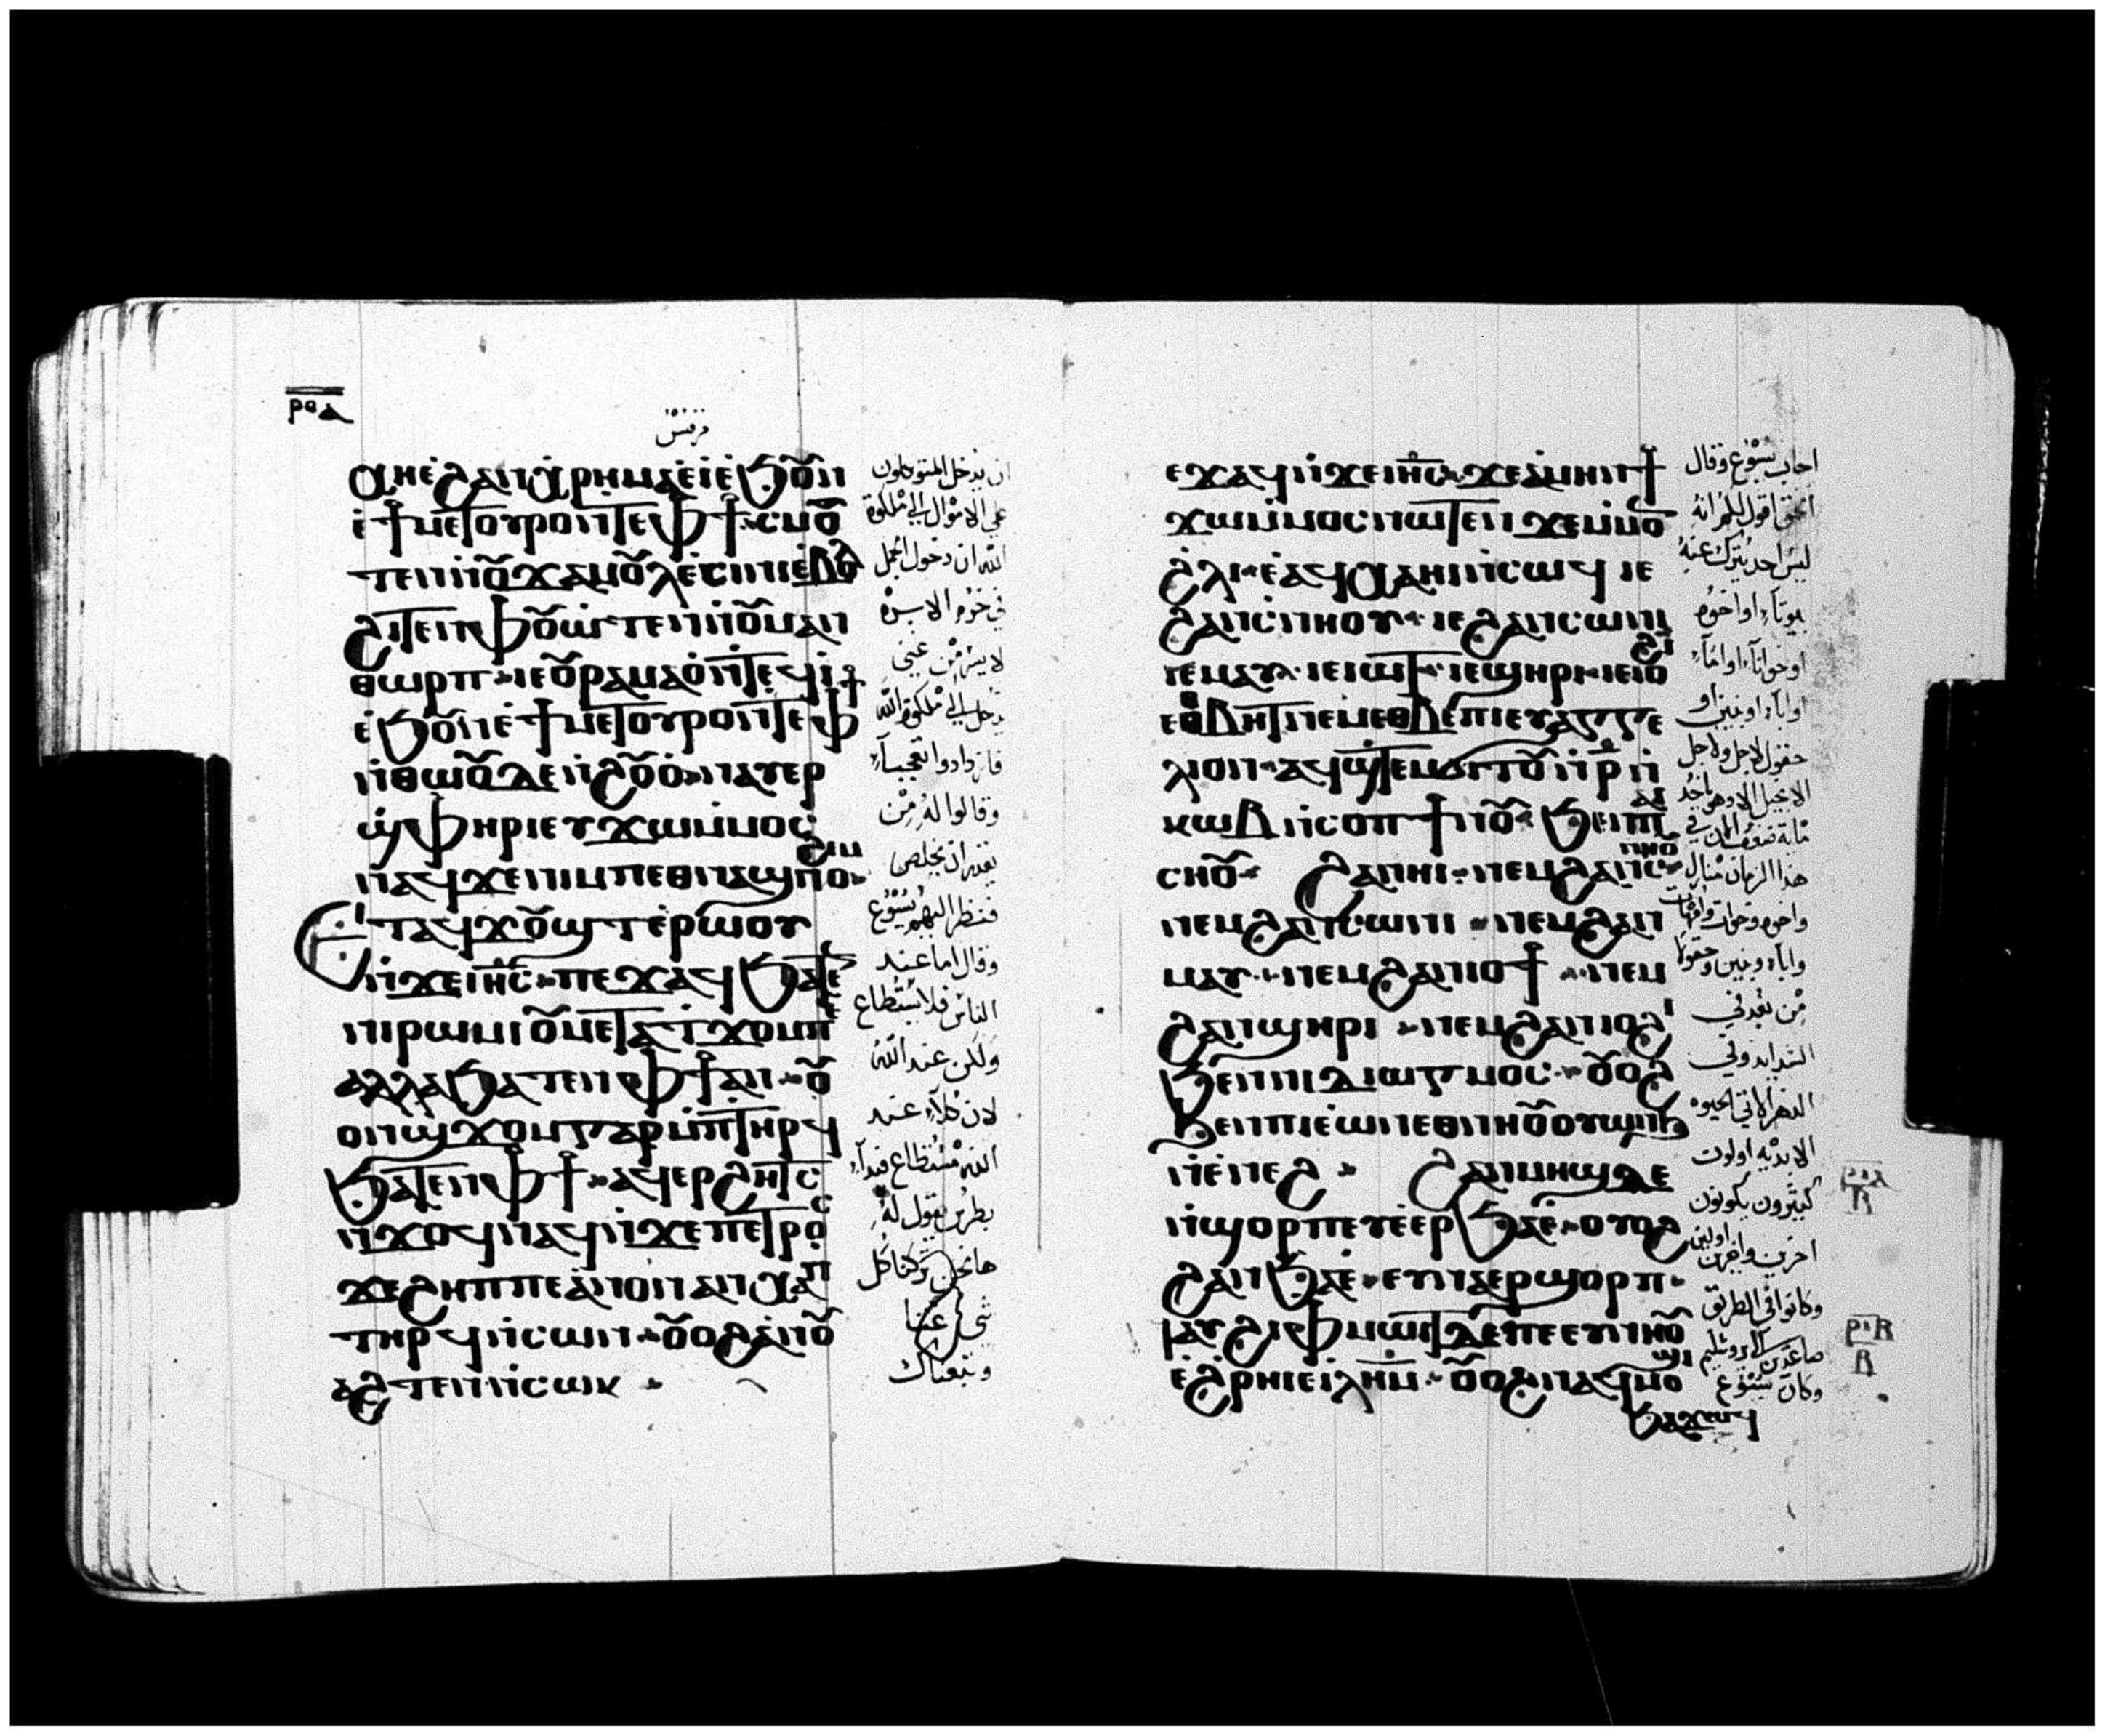 ⲣⲟⲁ
مرقس
ϭⲏ ⲉ ϩⲁⲛⲭⲣⲏⲙⲁ ⲉⲓ ⲉϧⲟⲩⲛ
ⲉϯⲙⲉⲧⲟⲩⲣⲟ ⲛⲧⲉ ⲫϯ ⲥⲙⲟ
ⲧⲉⲛ ⲛⲟⲩϫⲁⲙⲟⲩⲗ ⲉⲥⲓⲛⲓ ⲉⲃⲟⲗ
ϩⲓⲧⲉⲛ ⲫⲟⲩⲱⲧⲉⲛ ⲛⲟⲩⲙⲁⲛ
ⲑⲱⲣⲡ ⲓⲉ ⲟⲩⲣⲁⲙⲁⲟ ⲛⲧⲉϥⲓ
ⲉϧⲟⲩⲛ ⲉϯⲙⲉⲧⲟⲩⲣⲟ ⲛⲧⲉ ⲫϯ
ⲛⲑⲱⲟⲩ ⲇⲉ ⲛϩⲟⲩⲟ ⲛⲁⲩⲉⲣ
ϣⲫⲏⲣⲓ ⲉⲩϫⲱ ⲙⲙⲟⲥ
ⲛⲁϥ ϫⲉ ⲛⲓⲙ ⲡⲉⲑⲛⲁϣⲛⲟϩⲉⲙ
ⲉⲧⲁϥϫⲟⲩϣⲧ ⲉⲣⲱⲟⲩ
ⲛϫⲉ ⲓⲏⲥ ⲡⲉϫⲁϥ ϧⲁⲧⲉⲛ
ⲛⲓⲣⲱⲙⲓ ⲟⲩⲙⲉⲧⲁⲧϫⲟⲙ ⲧⲉ
ⲁⲗⲗⲁ ϧⲁⲧⲉⲛ ⲫϯ ⲁⲛ ⲟⲩ
ⲟⲛ ϣϫⲟⲙ ⲅⲁⲣ ⲙⲡⲧⲏⲣϥ
ϧⲁⲧⲉⲛ ⲫϯ ⲁϥⲉⲣϩⲏⲧⲥ
ⲛϫⲟⲥ ⲛⲁϥ ⲛϫⲉ ⲡⲉⲧⲣⲟⲥ
ϫⲉ ϩⲏⲡⲡⲉ ⲁⲛⲟⲛ ⲁⲛⲭⲁ ⲡ
ⲧⲏⲣϥ ⲛⲥⲱⲛ ⲟⲩⲟϩ ⲁⲛⲟⲩ
ⲁϩⲧⲉⲛ ⲛⲥⲱⲕ
ان يدخل المتوكلون
على الاموال الى ملكوة
الله ان دخول الجمل
في خرم الابره
لا يسر من غني
يدخل الى ملكوة الله
فازدادوا تعجباً
وقالوا له من
يقدر ان يخلص
فنظر اليهم يسوع
وقال اما عند
الناس فلا يستطاع
ولكن عند الله
لان كلاً عند
الله مستطاع فبدأ
بطرس يقول له
هانحن تركنا كل
شي عنا
وتبعناك
ⲉϫⲁϥ ⲛϫⲉ ⲓⲏⲥ ϫⲉ ⲁⲙⲏⲛ ϯ
ϫⲱ ⲙⲙⲟⲥ ⲛⲱⲧⲉⲛ ϫⲉ ⲙⲙⲟⲛ
ϩⲗⲓ ⲉⲁϥⲭⲁ ⲏⲓ ⲛⲥⲱϥ ⲓⲉ
ϩⲁⲛⲥⲛⲏⲟⲩ ⲓⲉ ϩⲁⲛⲥⲱⲛⲓ
ⲓⲉ ⲙⲁⲩ ⲓⲉ ⲓⲱⲧ ⲓⲉ ϣⲏⲣⲓ ⲓⲉ ⲓⲟϩⲓ
ⲉⲑⲃⲏⲧ ⲛⲉⲙ ⲉⲑⲃⲉ ⲡⲓⲉⲩⲁⲅⲅⲉ
ⲗⲓⲟⲛ ⲁϥϣⲧⲉⲙϭⲓⲧⲟⲩ ⲛⲣ ⲛ
ⲕⲱⲃ ⲛⲥⲟⲡ ϯⲛⲟⲩ ϧⲉⲛ ⲡⲁⲓ
ⲥⲏⲟⲩ ϩⲁⲛⲏⲓ ⲛⲉⲙ ϩⲁⲛⲥⲛⲏⲟⲩ
ⲛⲉⲙ ϩⲁⲛⲥⲱⲛⲓ ⲛⲉⲙ ϩⲁⲛ
ⲙⲁⲩ ⲛⲉⲙ ϩⲁⲛⲓⲟϯ ⲛⲉⲙ
ϩⲁⲛϣⲏⲣⲓ ⲛⲉⲙ ϩⲁⲛⲓⲟϩⲓ
ϧⲉⲛ ⲡⲓⲇⲓⲱⲅⲙⲟⲥ ⲟⲩⲟϩ
ϧⲉⲛ ⲡⲓⲉⲱⲛ ⲉⲑⲛⲏⲟⲩ ⲟⲩⲱⲛϧ
ⲛⲉⲛⲉϩ ϩⲁⲛⲙⲏϣ ⲇⲉ
ⲛϣⲟⲣⲡ ⲉⲩⲉⲉⲣϧⲁⲉ ⲟⲩⲟϩ
ϩⲁⲛϧⲁⲉ ⲉⲩⲛⲁⲉⲣϣⲟⲣⲡ
ⲛⲁⲩϩⲓ ⲫⲙⲱⲓⲧ ⲇⲉ ⲡⲉ ⲉⲩⲛⲏⲟⲩ
ⲉϩⲣⲏⲓ ⲉⲓⲗⲏⲙ ⲟⲩⲟϩ ⲛⲁϥⲙⲟϣⲓ
ϧⲁϫⲱⲟⲩ
اجاب يسوع وقال
الحق اقول لكم انه
ليس احد يترك عنه
بيوتاً او اخوه
او خواتاً او اماً
او اباً او بنين او
حقول لاجلي ولاجل
الانجيل الا وهو ياخذ
ماية ضعف الان في
هذا الزمان منازل
واخوه وخوات وامهات
واباء وبنين وحقولاً
الدهر الاتي الحيوه
الابديه اولون
كثيرون يكونون
اخرين واخرين اولين
وكانوا في الطريق
صاعدين الى يروشليم
وكان يسوع